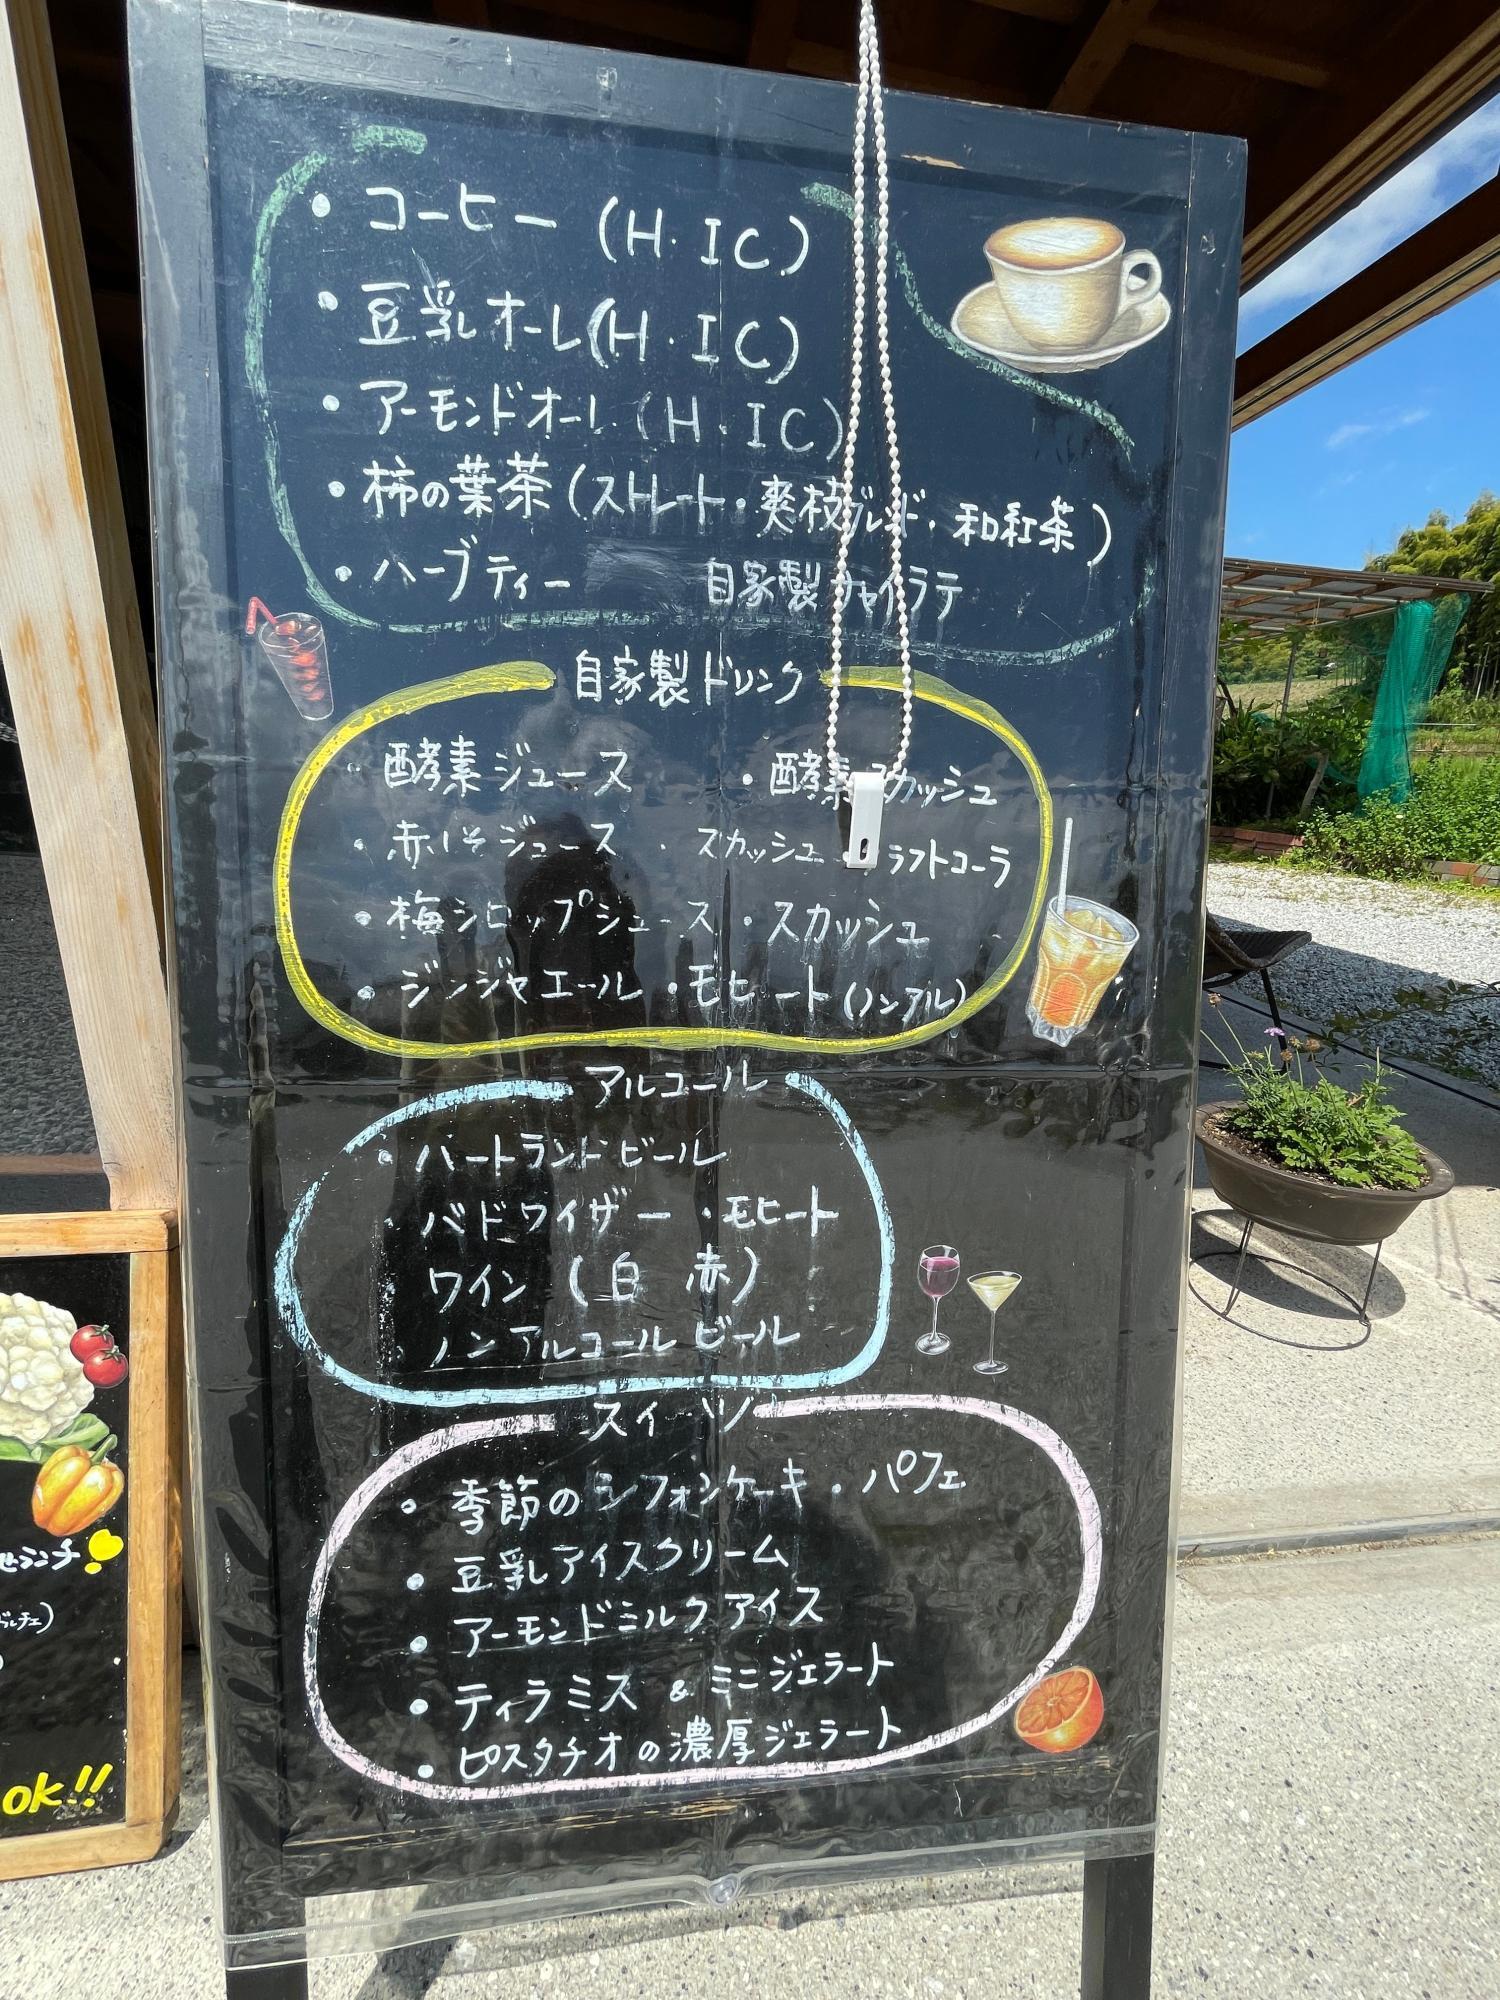 ・コーヒー (H・IC)
・豆乳オーレ(H・IC)
・アーモンドオーレ (H・IC)
・柿の葉茶 (ストレート・爽枝ブレンド・和紅茶)
・ハーブティー 自家製チャイラテ
自家製ドリンク
・酵素ジュース ・酵素スカッシュ
・赤しそジュース ・スカッシュ ・クラフトコーラ
・梅シロップジュース ・スカッシュ
・ジンジャエール ・モヒート(ノンアル)
アルコール
・ハートランドビール
・バドワイザー ・モヒート
ワイン (白 赤)
・ノンアルコールビール
スイーツ
・季節のシフォンケーキ・パフェ
・豆乳アイスクリーム
・アーモンドミルクアイス
・ティラミス & ミニジェラート
・ピスタチオの濃厚ジェラート
ランチ
ドルチェ)
ok!!